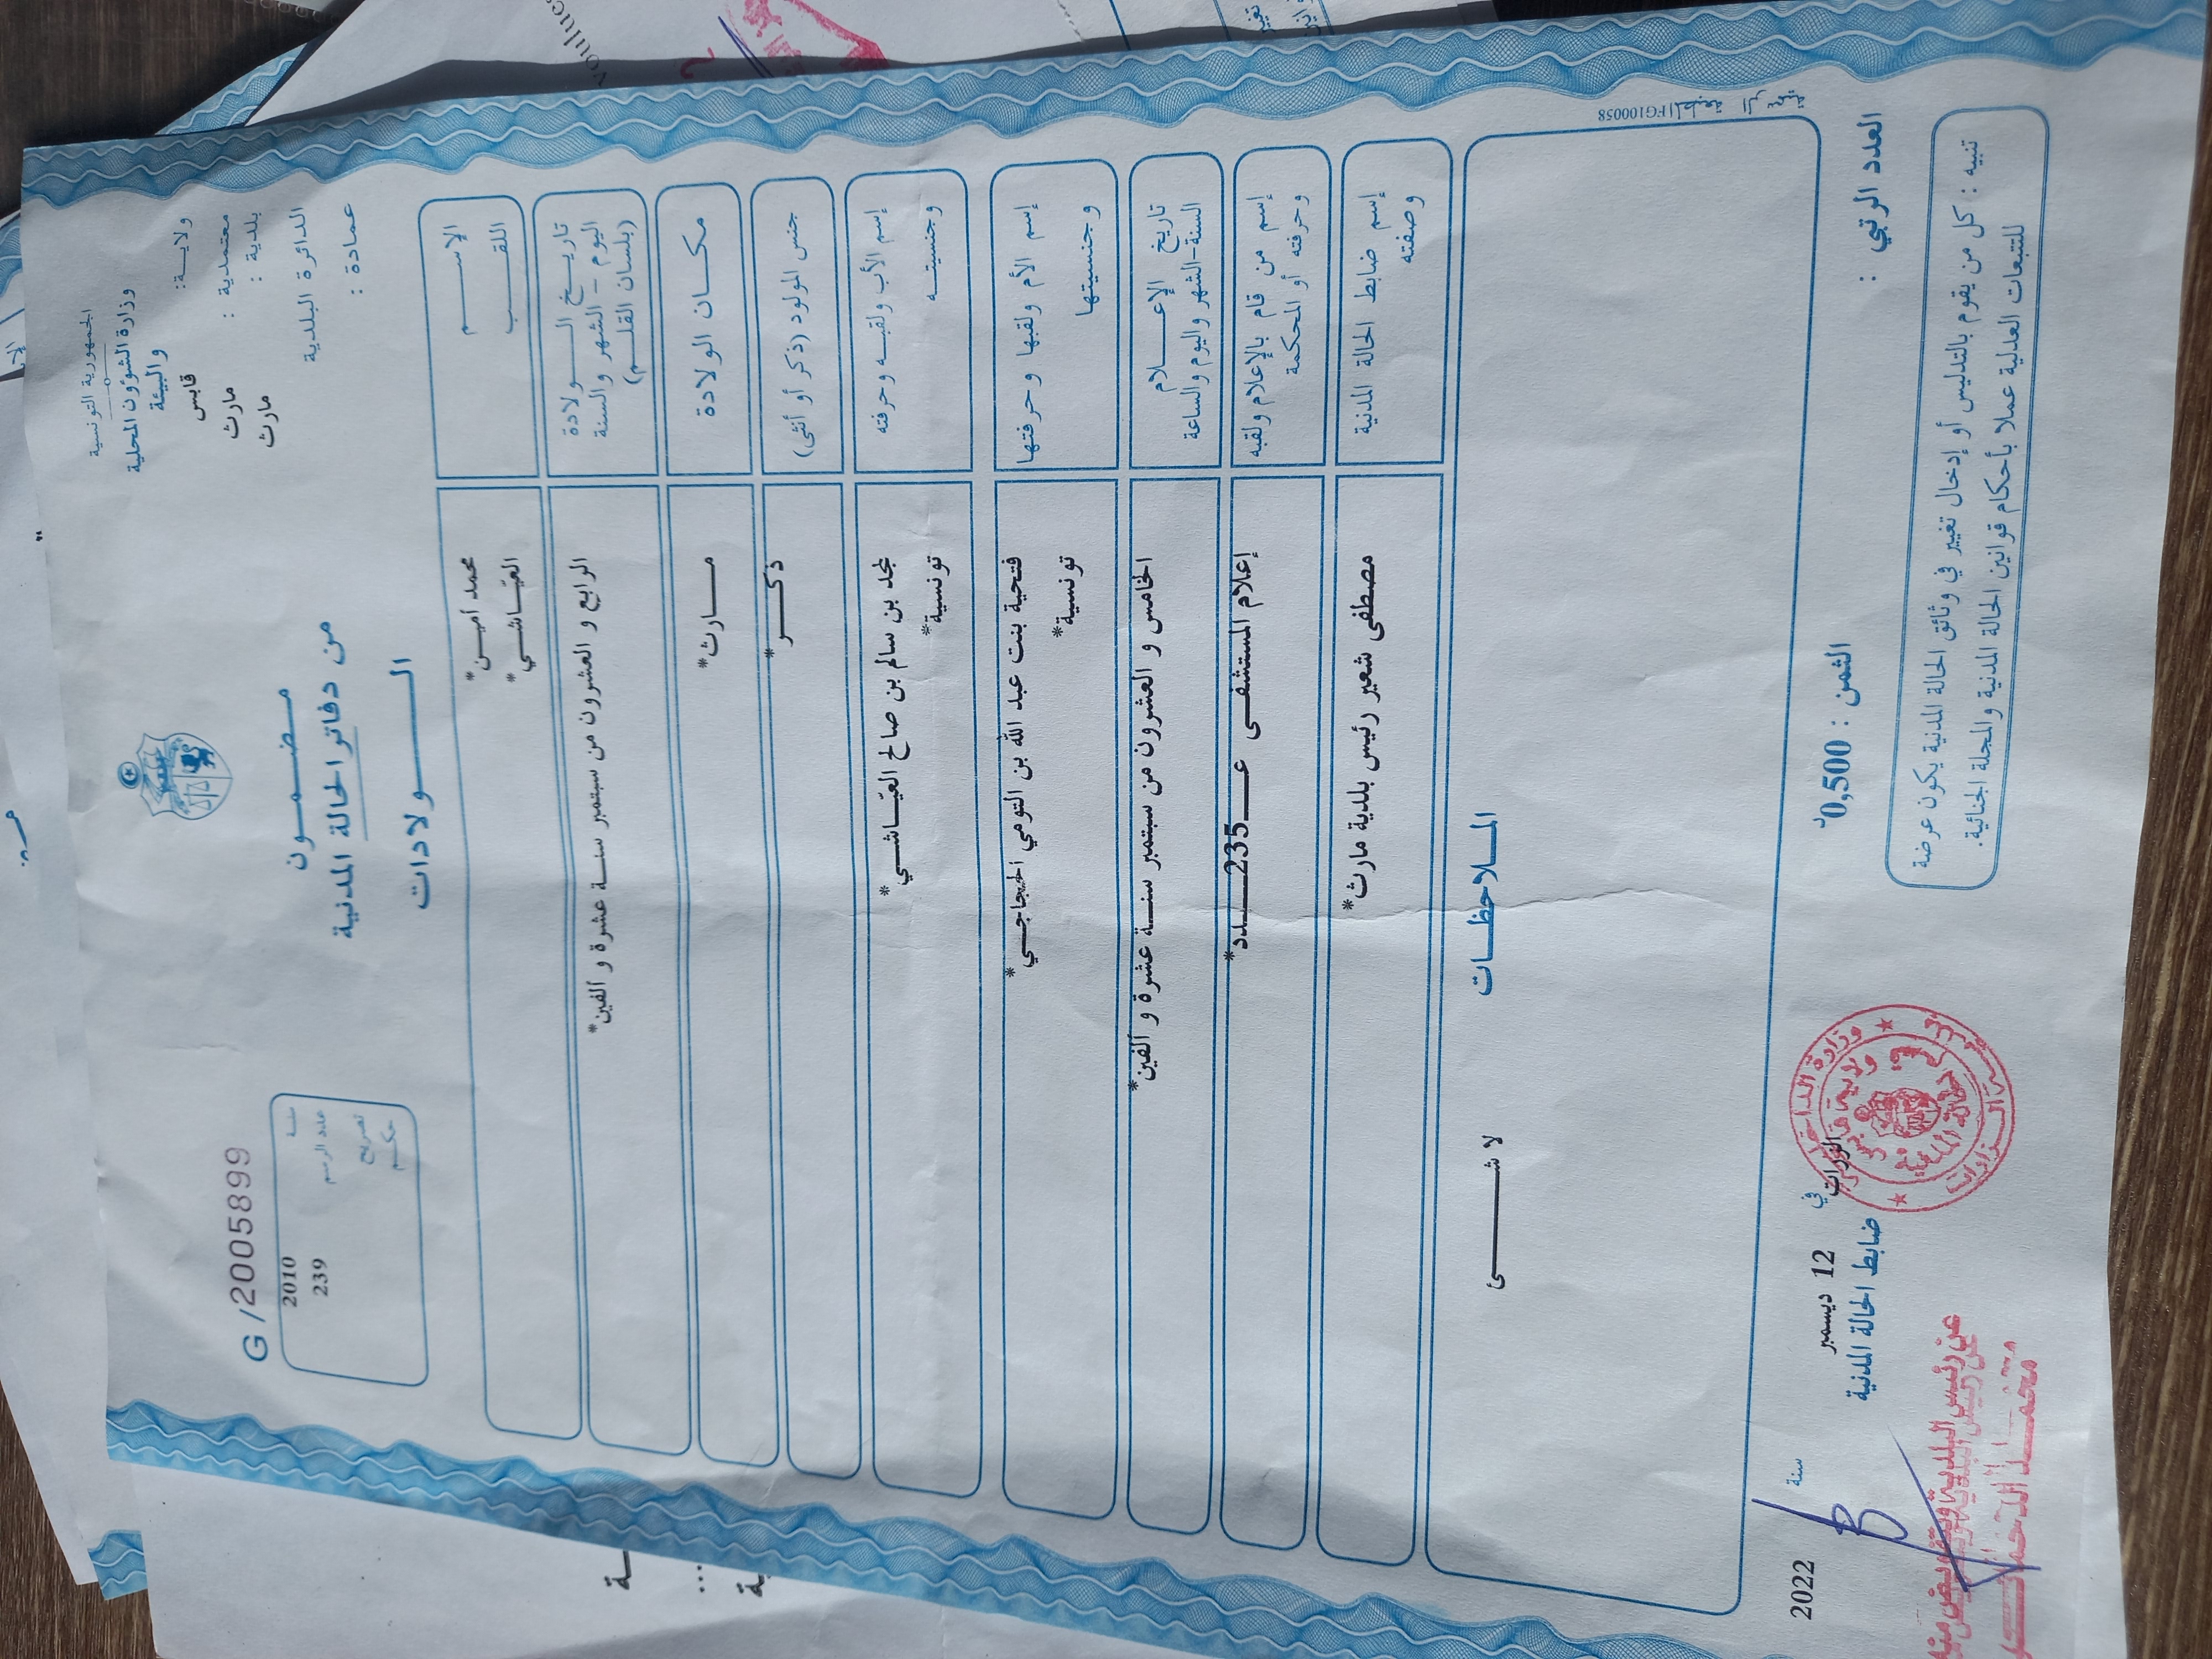 الجمهورية التونسية
وزارة الشؤون المحلية
والبيئة
ولاية: قابس
معتمدية : مارث
بلدية : مارث
الدائرة البلدية
عمادة :
مضمون
من دفاتر الحالة المدنية
الولادات
G /2005899
سنة 2010
عدد الرسم 239
تصريح
حكم
الاسم محمد أمين*
اللقب العيّاشي*
تاريخ الولادة
اليوم - الشهر والسنة
(بلسان القلم)
الرابع و العشرون من سبتمبر سنة عشرة و ألفين*
مكان الولادة مارث*
جنس المولود (ذكر أو أنثى) ذكر*
إسم الأب ولقبه وحرفته
وجنسيته
بن سالم بن صالح العيّاشي*
تونسية*
إسم الأم ولقبها وحرفتها
وجنسيتها
فتحية بنت عبد الله بن التومي الحجاجي*
تونسية*
تاريخ الإعلام
السنة-الشهر واليوم والساعة
الخامس و العشرون من سبتمبر سنة عشرة و ألفين*
إسم من قام بالإعلام ولقبه
وحرفته أو المحكمة
إعلام المستشفى عـ235ـدد*
إسم ضابط الحالة المدنية
وصفته
مصطفى شعير رئيس بلدية مارث*
الملاحظات
لا شئ
FG100058
العدد الرتبي :
الثمن : 0,500د
في الزارات 12 ديسمبر سنة 2022
ضابط الحالة المدنية
وزارة الداخلية
ولاية قابس
عن رئيس البلدية وبتفويض منه
تنبيه : كل من يقوم بالتدليس أو إدخال تغيير في وثائق الحالة المدنية يكون عرضة
للتتبعات العدلية عملا بأحكام قوانين الحالة المدنية والمجلة الجنائية.